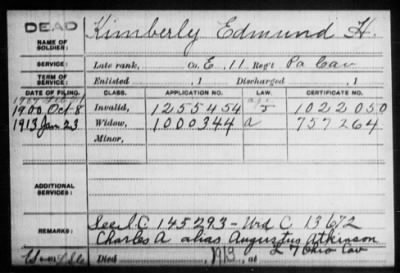 DEAD
NAME OF SOLDIER: Kimberly Edmund H.
SERVICE: Late rank, Co. E, 11 Reg't Pa Cav
TERM OF SERVICE: Enlisted , 1 Discharged , 1
DATE OF FILING. CLASS. APPLICATION NO. LAW. CERTIFICATE NO.
1900 Oct 8 Invalid, 1255454 1022050
1913 Jan 23 Widow, 1000344 a 757264
Minor,
ADDITIONAL SERVICES:
REMARKS: See I C 145293 - Wid C 13672
Charles A alias Augustus Atkinson
L 7 Ohio Cav
Died , 191 , at